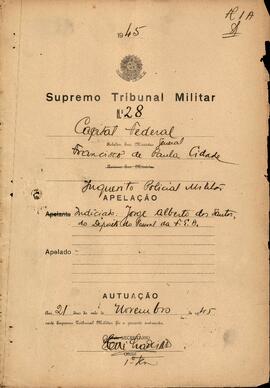 1945
Supremo Tribunal Militar
Nº 28
Capital Federal
General
Francisco de Paula Cidade
Inquerito Policial Militar
APELAÇÃO
Apelante Indiciado: Jorge Alberto dos Santos,
do Deposito do Pessoal da F.E.B.
Apelado
AUTUAÇÃO
Aos 21 dias do mês de Novembro de 1945
neste Supremo Tribunal Militar
SECRETARIO